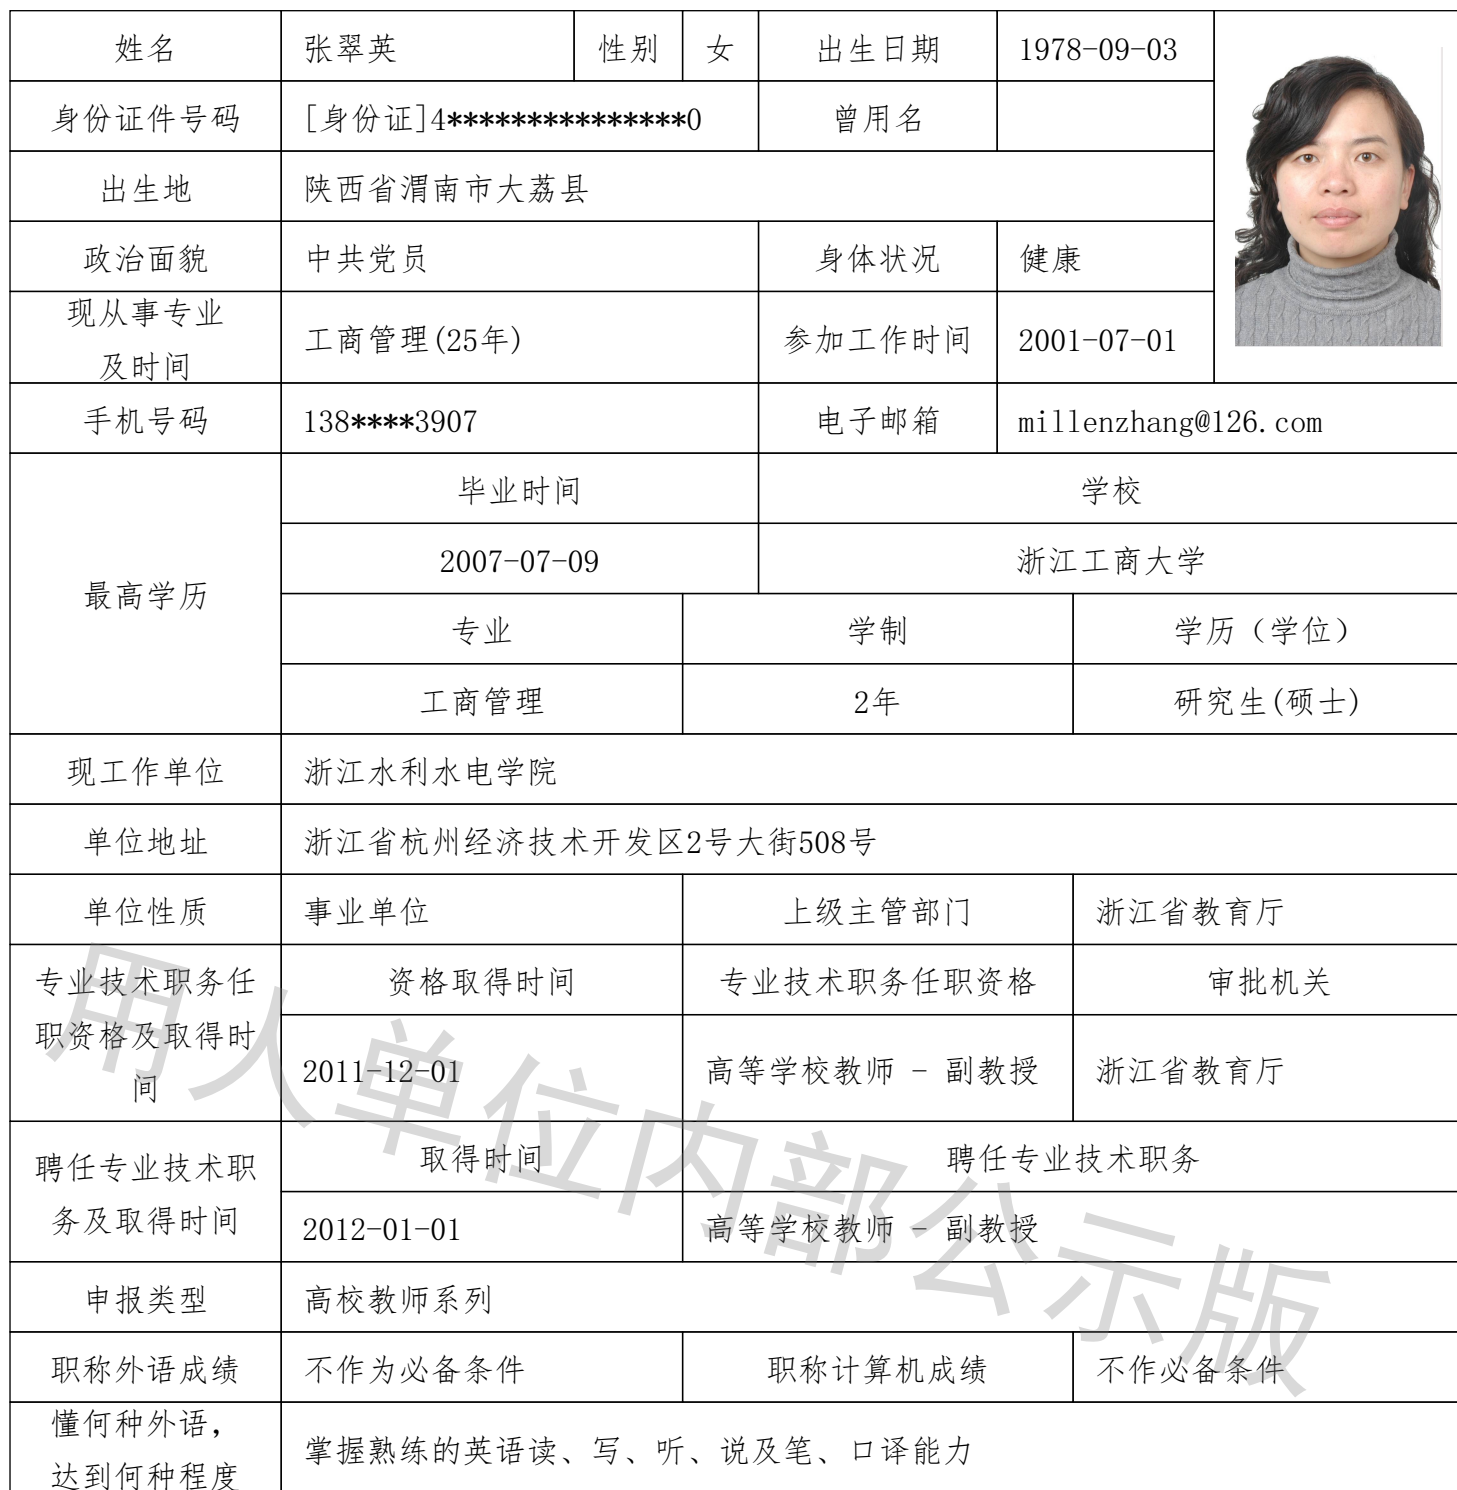 姓名 张翠英 性别 女 出生日期 1978-09-03
身份证件号码 [身份证]4***************0 曾用名
出生地 陕西省渭南市大荔县
政治面貌 中共党员 身体状况 健康
现从事专业
及时间 工商管理(25年) 参加工作时间 2001-07-01
手机号码 138****3907 电子邮箱 millenzhang@126.com
最高学历
毕业时间 学校
2007-07-09 浙江工商大学
专业 学制 学历（学位）
工商管理 2年 研究生(硕士)
现工作单位 浙江水利水电学院
单位地址 浙江省杭州经济技术开发区2号大街508号
单位性质 事业单位 上级主管部门 浙江省教育厅
专业技术职务任
职资格及取得时
间
资格取得时间 专业技术职务任职资格 审批机关
2011-12-01 高等学校教师 - 副教授 浙江省教育厅
聘任专业技术职
务及取得时间
取得时间 聘任专业技术职务
2012-01-01 高等学校教师 - 副教授
申报类型 高校教师系列
职称外语成绩 不作为必备条件 职称计算机成绩 不作必备条件
懂何种外语，
达到何种程度 掌握熟练的英语读、写、听、说及笔、口译能力
用人单位内部公示版